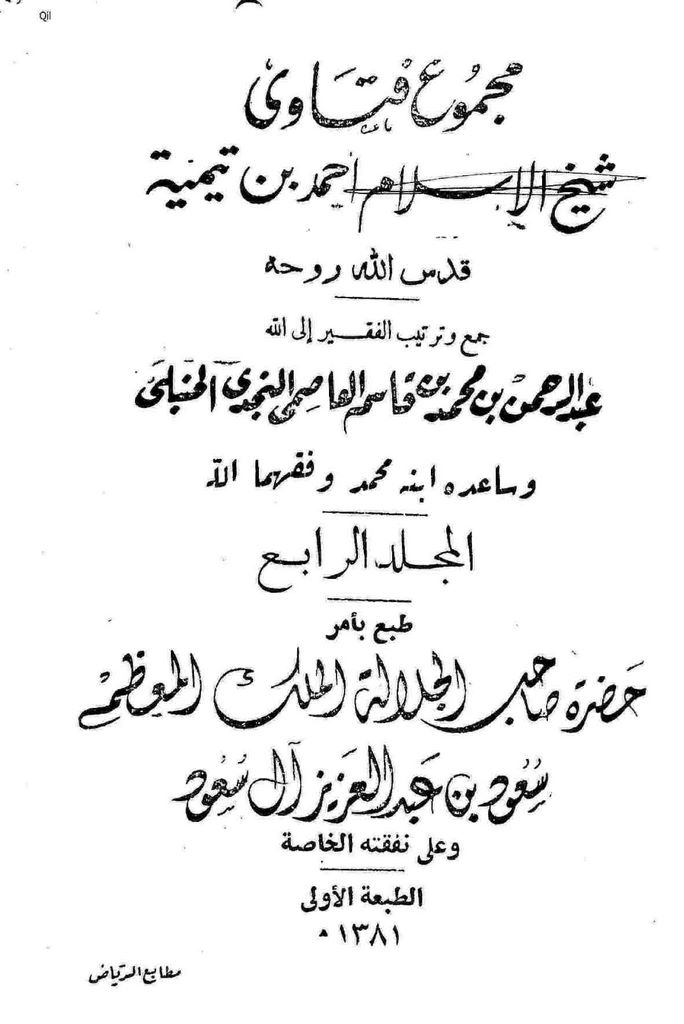 Qil
مجموع فتاوى
شيخ الإسلام احمد بن تيمية
قدس الله روحه
جمع وترتيب الفقير إلى الله
عبد الرحمن بن محمد بن قاسم العاصمي النجدي الحنبلي
وساعده ابنه محمد وفقهما الله
المجلد الرابع
طبع بأمر
حضرة صاحب الجلالة الملك المعظم
سعود بن عبد العزيز آل سعود
وعلى نفقته الخاصة
الطبعة الأولى
١٣٨١ ه
مطابع الرياض